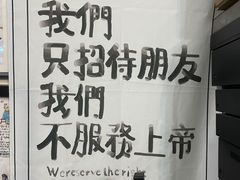 我們
只招待朋友
我們
不服務上帝
We reserve the right